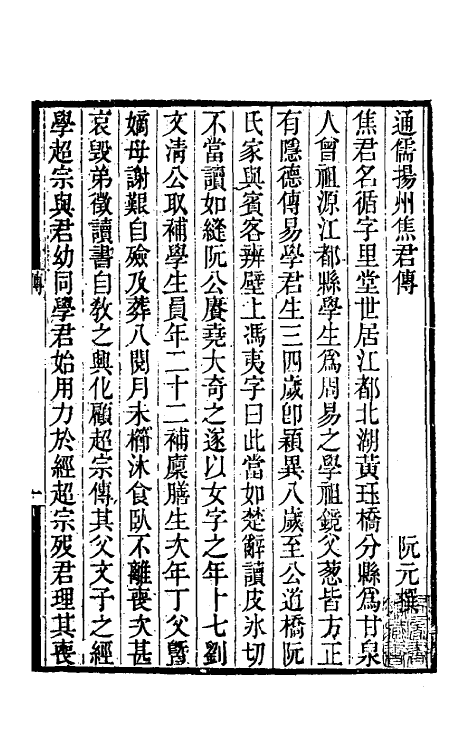 通儒揚州焦君傳 阮元撰
焦君名循字里堂世居江都北湖黃玨橋分縣爲甘泉
人曾祖源江都縣學生爲周易之學祖鏡父蔥皆方正
有隱德傳易學君生三四歲卽穎異八歲至公道橋阮
氏家與賓客辨壁上馮夷字曰此當如楚辭讀皮冰切
不當讀如縫阮公賡堯大奇之遂以女字之年十七劉
文清公取補學生員年二十二補廩膳生次年丁父曁
嫡母謝艱自殮及葬八閱月未櫛沐食臥不離喪次甚
哀毀弟徵讀書自敎之興化顧超宗傳其父文子之經
學超宗與君幼同學君始用力於經超宗歿君理其喪
傳
一